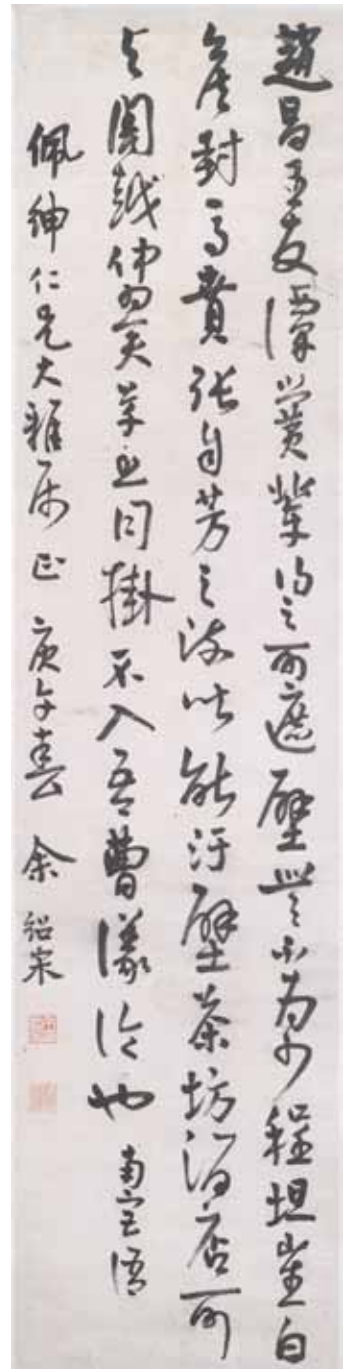 趙昌王友鐔黌輩得之可遮壁無不為少程坦崔白
矦封馬賁張自芳之流皆能汙壁茶坊酒店可
与周越仲翼草書同掛不入吾曹議論也 南宮語
佩紳仁兄大雅屬正 庚午春 余紹宋